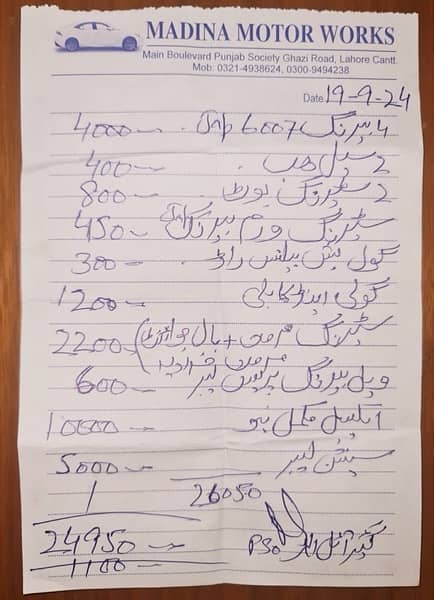 MADINA MOTOR WORKS
Main Boulevard Punjab Society Ghazi Road, Lahore Cantt.
Mob: 0321-4938624, 0300-9494238
Date 19-9-24
4 بیرنگ 6007 Jap 4000
2 سیل حب 400
2 سٹیرنگ بورٹ 800
سٹیرنگ ورم بیرنگ 450
گول بش بیلنس راڈ 300
گولی اپنڈ کابلی 1200
سٹیرنگ مرمت + بال جوائنٹ 2200
مرمت خرادیہ
ویل بیرنگ پریس لیبر 600
ایکسل مکمل نیو 10000
سپشن لیبر 5000
26050
24950
گیئر آئل PSO
1100